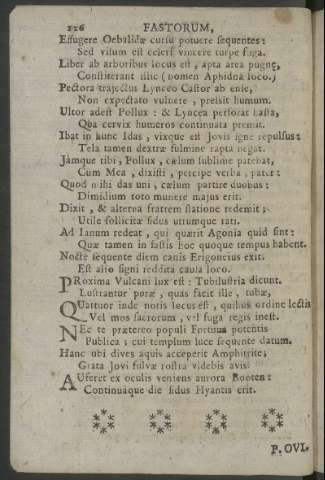 226 FASTORUM,
Effugere Oebalidæ cursu potuere sequentes:
Sed visum est celeri vincere turpe fuga.
Liber ab arboribus locus est, apta area pugnę,
Constiterant illic (nomen Aphidna loco.)
Pectora trajectus Lynceo Castor ab ense,
Non expectato vulnere, pressit humum.
Ultor adest Pollux: & Lyncea perforat hasta,
Qua cervix humeros continuata premit.
Ibat in hunc Idas, vixque est Jovis igne repulsus:
Tela tamen dextræ fulmine rapta negat.
Jamque tibi, Pollux, cælum sublime patebat,
Cum Mea, dixisti, percipe verba, pater:
Quod mihi das uni, cælum partire duobus:
Dimidium toto munere majus erit.
Dixit, & alterna fratrem statione redemit:
Utile sollicitæ sidus utrumque rati.
Ad Janum redeat, qui quærit Agonia quid sint:
Quæ tamen in fastis hoc quoque tempus habent.
Nocte sequente diem canis Erigoneius exit.
Est alio signi reddita causa loco.
PRoxima Vulcani lux est: Tubilustria dicunt.
Lustrantur puræ, quas facit ille, tubæ,
QUattuor inde notis locus est, quibus ordine lectis
Vel mos sacrorum, vel fuga regis inest.
NEc te prætereo populi Fortuna potentis
Publica; cui templum luce sequente datum.
Hanc ubi dives aquis acceperit Amphitrite;
Grata Jovi fulvæ rostra videbis avis.
AUferet ex oculis veniens aurora Booten:
Continuaque die sidus Hyantis erit.
P. OVI.